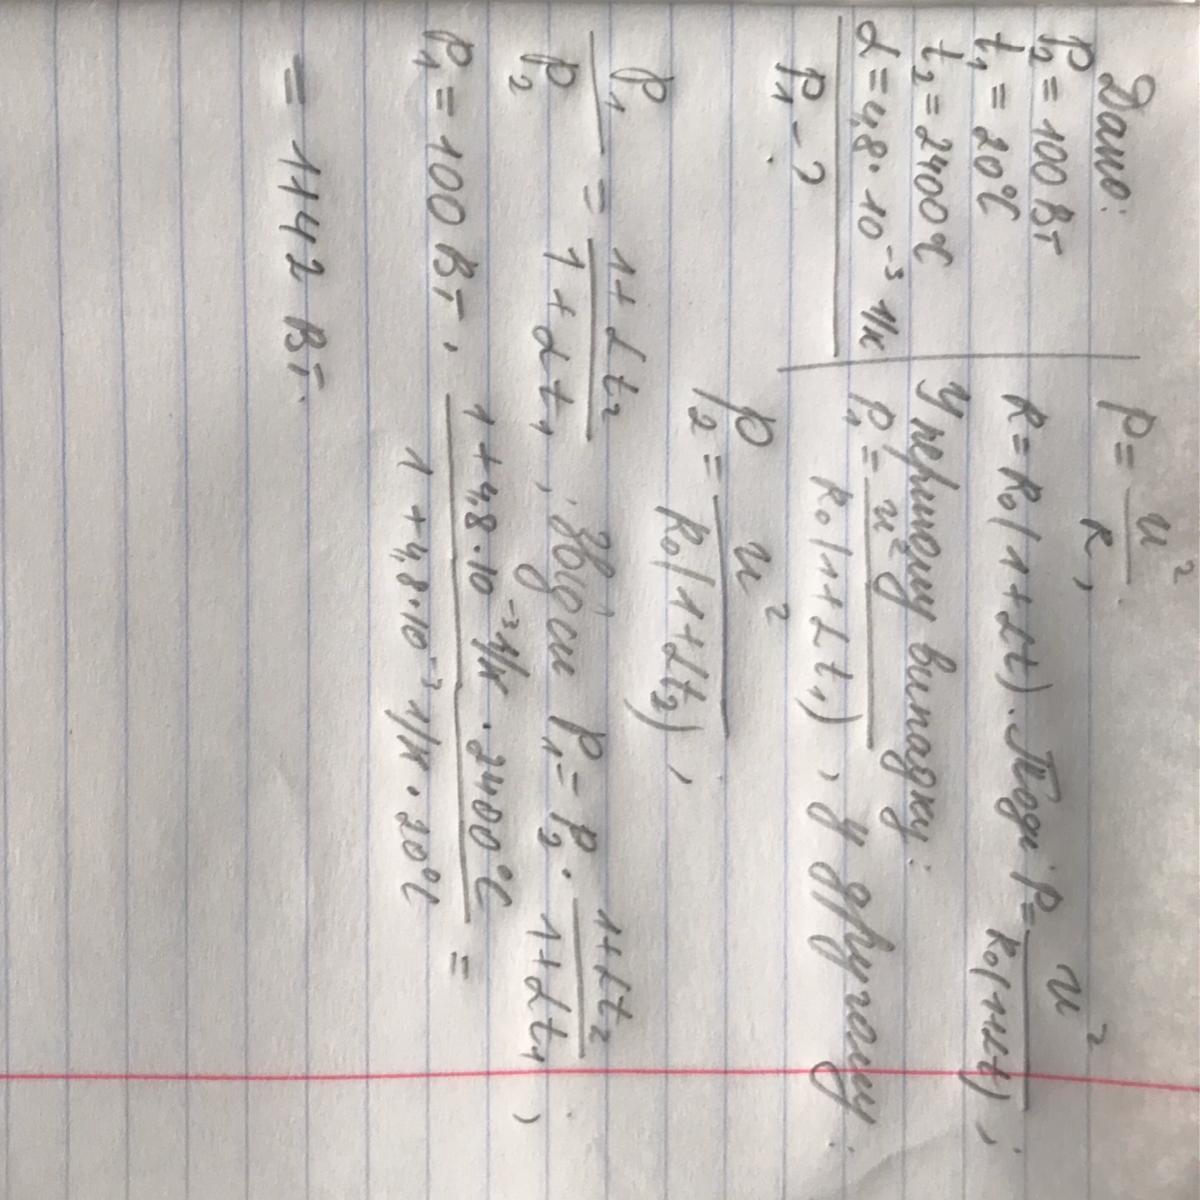 Дано:
P₂ = 100 Вт
t₁ = 20℃
t₂ = 2400℃
α = 4,8·10⁻³ 1/К
P₁ - ?
P = U²/R,
R = R₀(1+αt). Тоді P = U²/R₀(1+αt);
У першому випадку:
P₁ = U²/R₀(1+αt₁), у другому:
P₂ = U²/R₀(1+αt₂),
P₁/P₂ = 1+αt₂/1+αt₁, звідси P₁ = P₂ · 1+αt₂/1+αt₁,
P₁ = 100 Вт · 1+4,8·10⁻³ 1/К · 2400℃/1+4,8·10⁻³ 1/К · 20℃ =
= 1142 Вт.